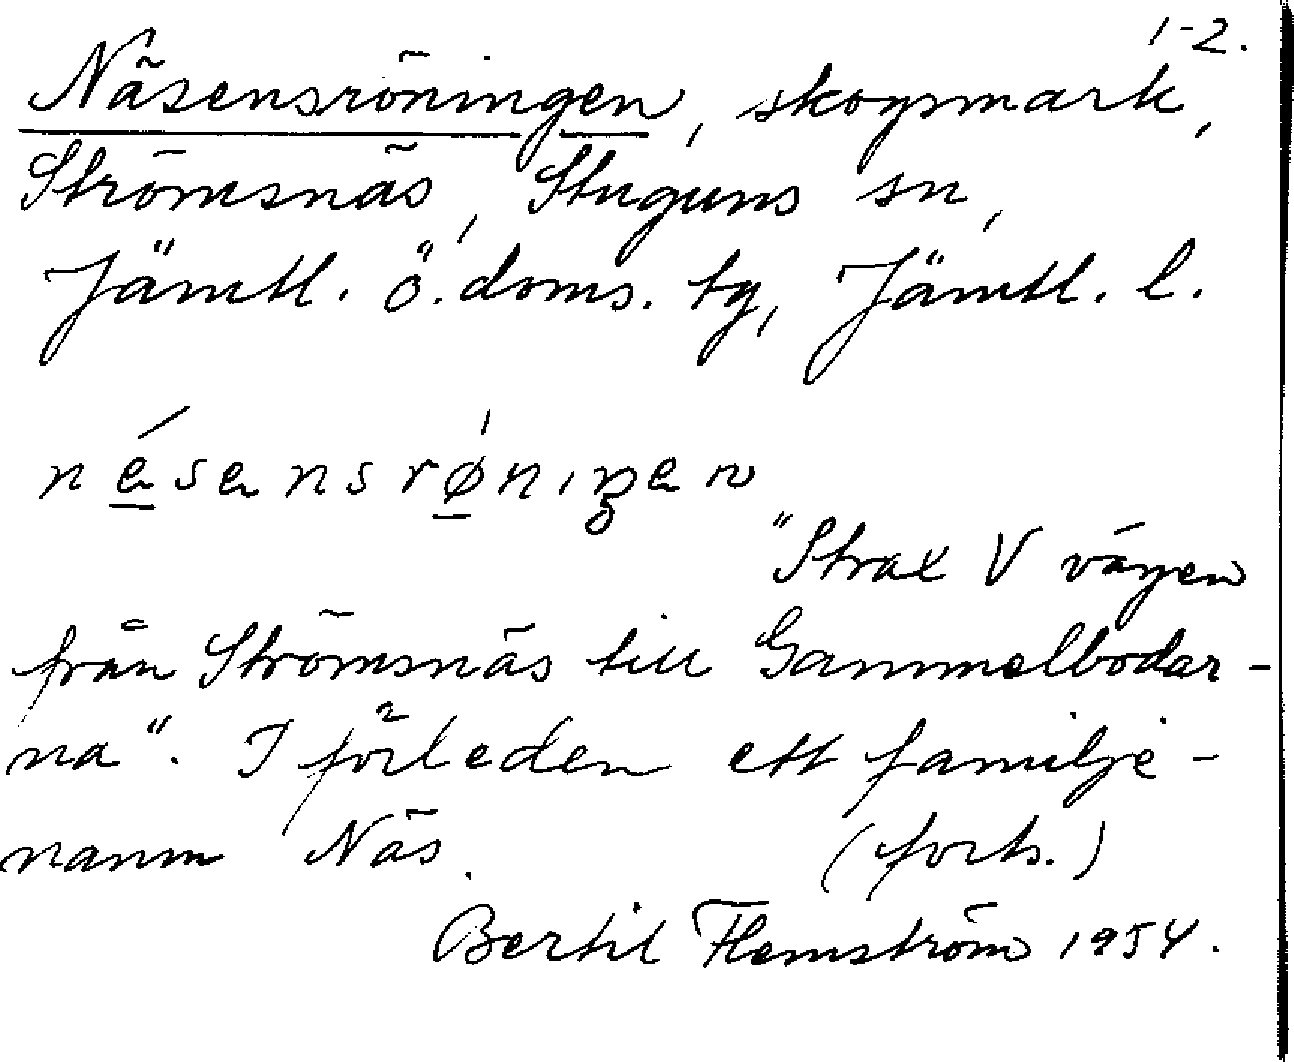 1-2.
Näsensröningen, skogsmark,
Strömsnäs, Stuguns sn,
Jämtl. ö. doms. tg, Jämtl. l.
"Strax V vägen
från Strömsnäs till Gammelbodar-
na". I förleden ett familje-
namn Näs. (forts.)
Bertil Flemström 1954.